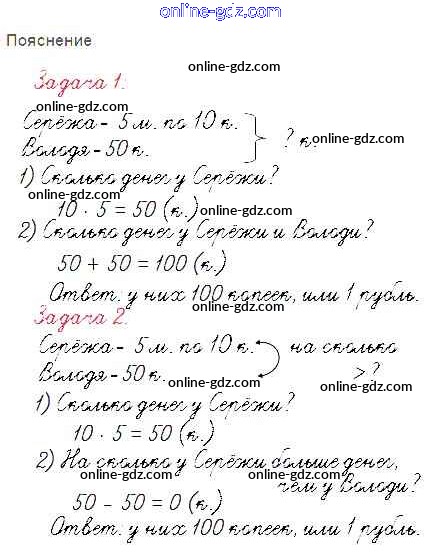 online-gdz.com
Пояснение
online-gdz.com
Задача 1.
online-gdz.com
Серёжа - 5 м. по 10 к.
online-gdz.com
? к.
Володя - 50 к.
1) Сколько денег у Серёжи?
online-gdz.com
10 · 5 = 50 (к.)
online-gdz.com
2) Сколько денег у Серёжи и Володи?
50 + 50 = 100 (к.)
online-gdz.com
Ответ: у них 100 копеек, или 1 рубль.
online-gdz.com
Задача 2.
Серёжа - 5 м. по 10 к. на сколько
online-gdz.com
Володя - 50 к. > ?
online-gdz.com
online-gdz.com
1) Сколько денег у Серёжи?
10 · 5 = 50 (к.)
online-gdz.com
2) На сколько у Серёжи больше денег,
online-gdz.com
чем у Володи?
50 - 50 = 0 (к.)
online-gdz.com
Ответ: у них 100 копеек, или 1 рубль.